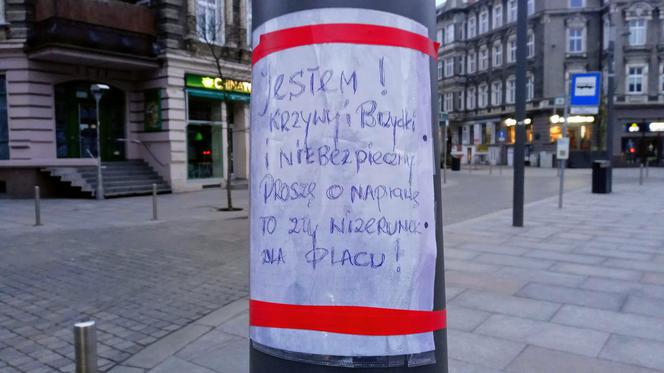 JESTEM !
KRZYWY i BRZYDKI
I NIEBEZPIECZNY.
PROSZĘ O NAPRAWĘ
TO ZŁY WIZERUNEK
DLA PLACU !